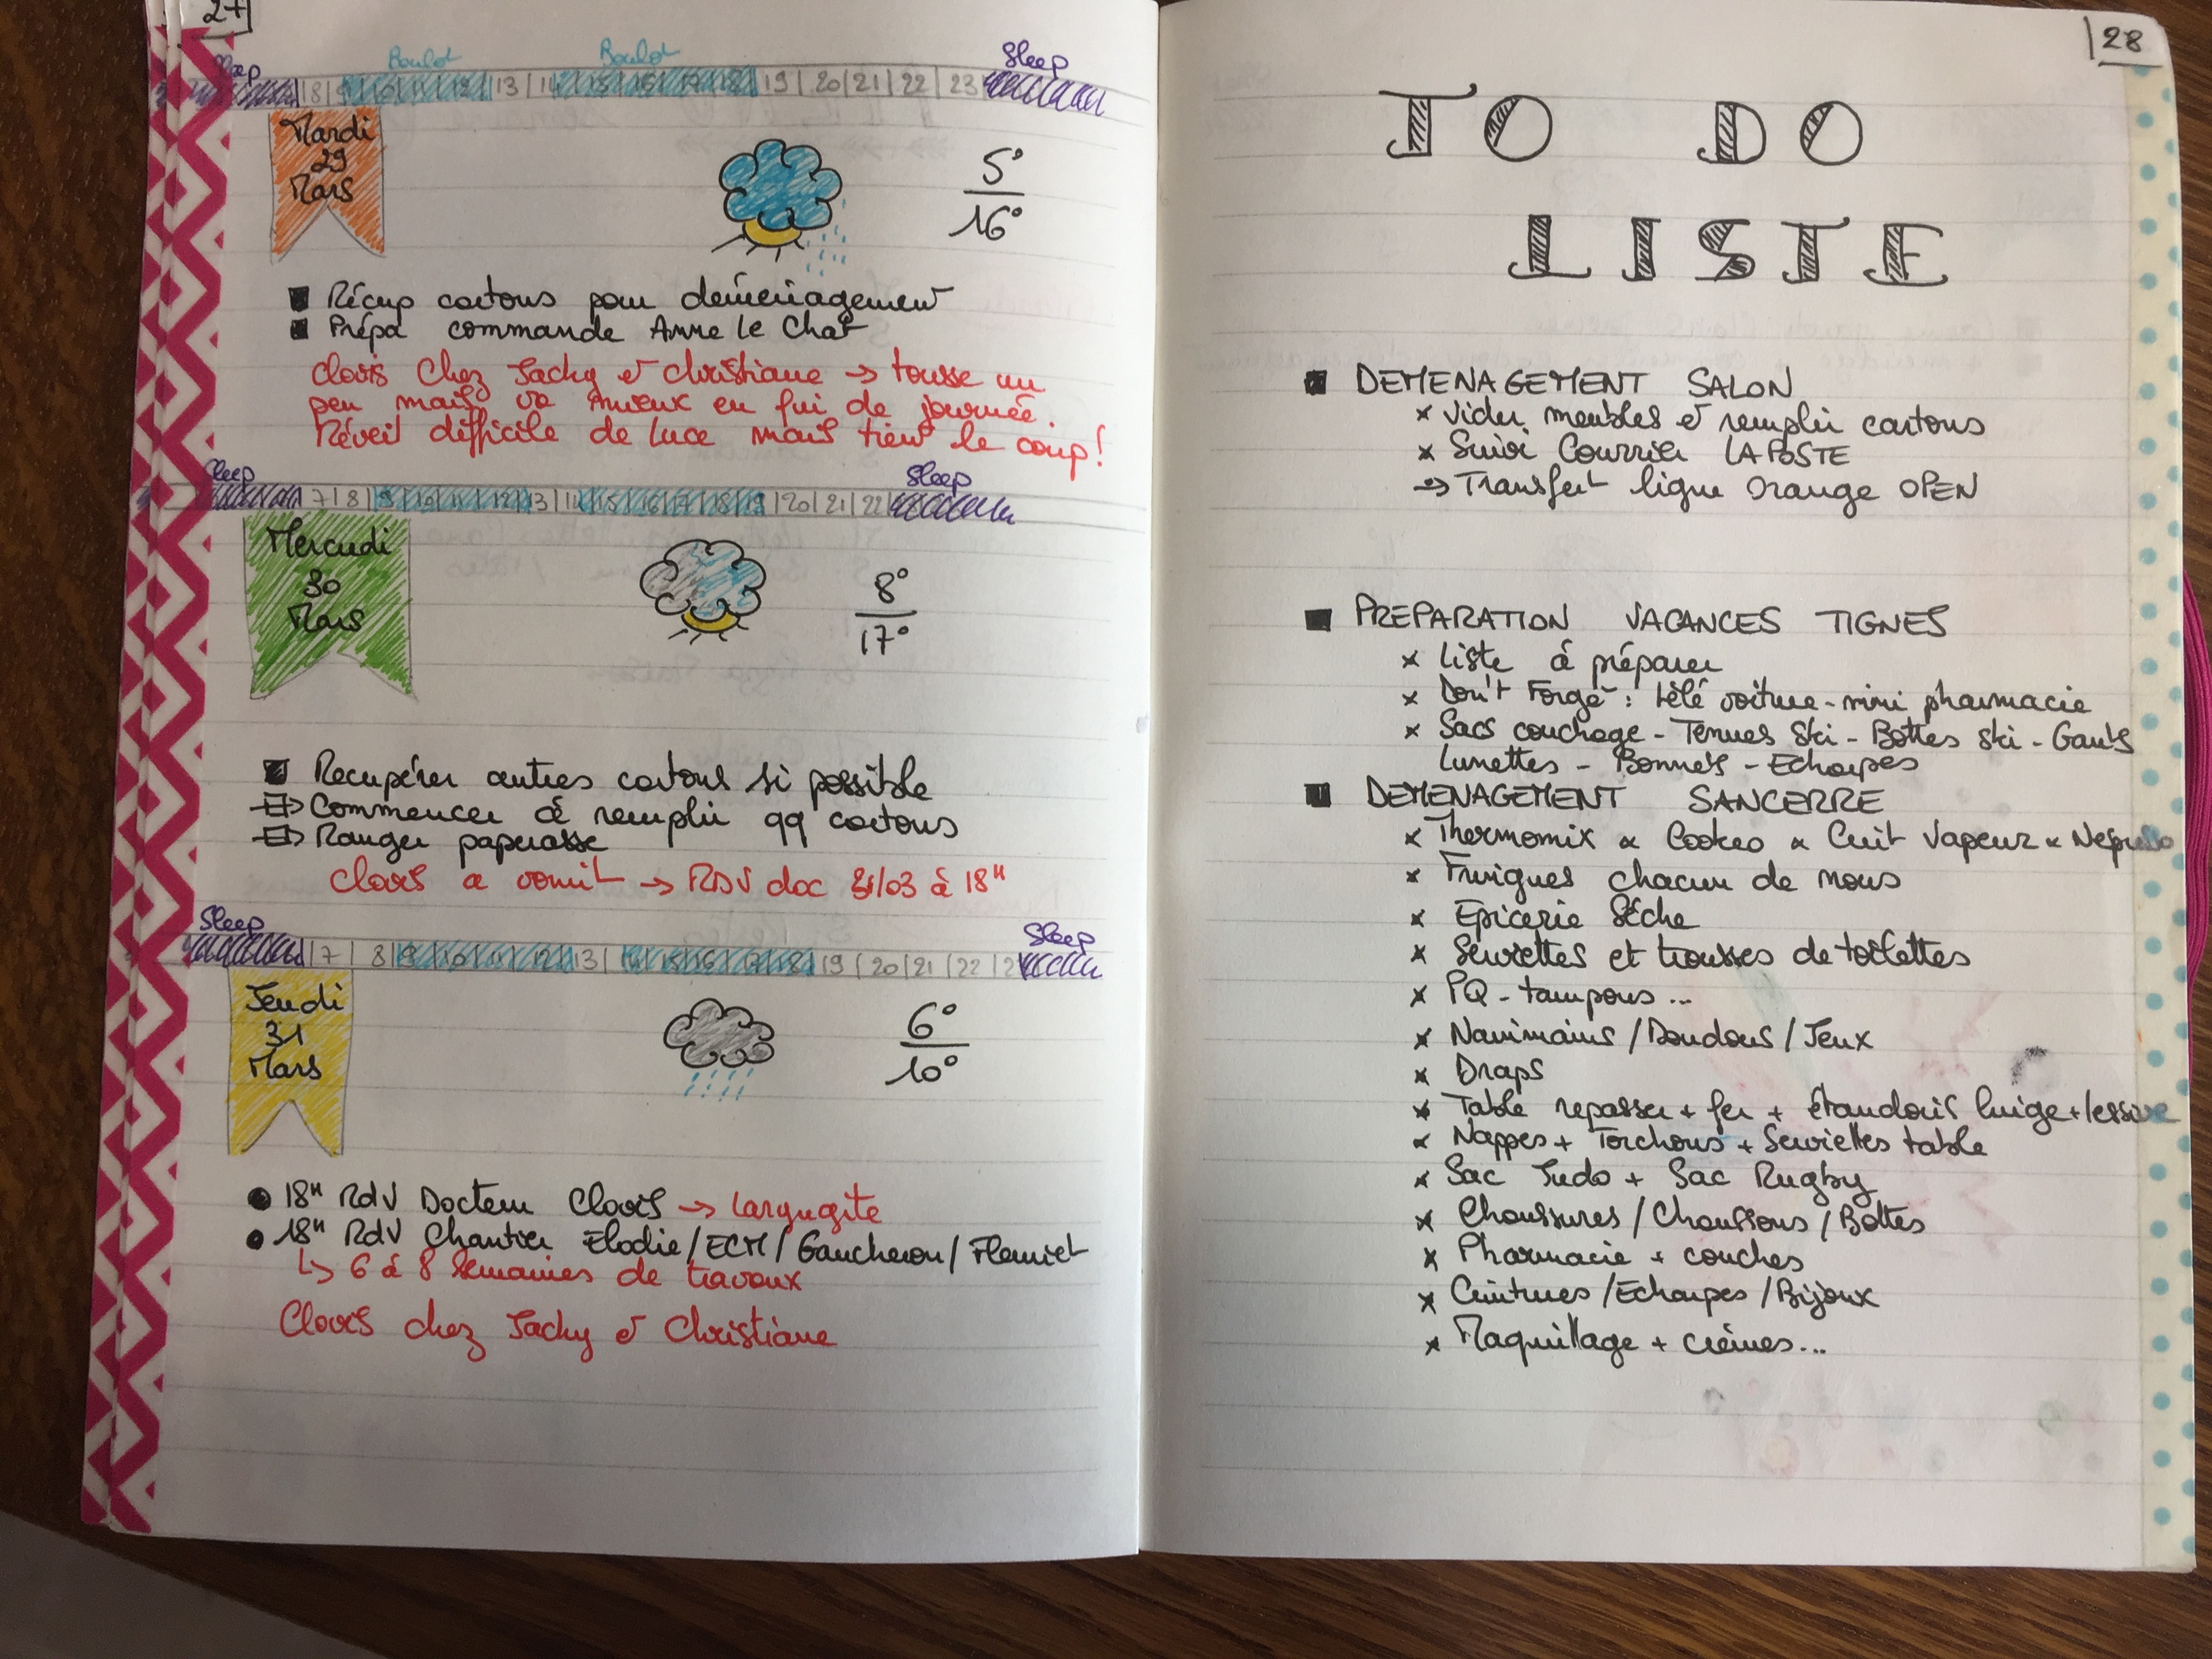 27
Sleep Boulot Boulot Sleep
8 9 10 11 12 13 14 15 16 17 18 19 20 21 22 23
Mardi
29
Mars
5°
16°
Récup cartons pour déménagement
Prépa commande Anne Le Chat
Clovis chez Jacky et Christiane → tousse un
peu mais va mieux en fin de journée.
Réveil difficile de Luce mais tient le coup!
Sleep Sleep
7 8 9 10 11 12 13 14 15 16 17 18 19 20 21 22
Mercredi
30
Mars
8°
17°
Recupérer autres cartons si possible
Commencer à remplir qq cartons
Ranger paperasse
Clovis a vomit → RDV doc 31/03 à 18H
Sleep Sleep
7 8 9 10 11 12 13 14 15 16 17 18 19 20 21 22 2
Jeudi
31
Mars
6°
10°
18H RdV Docteur Clovis → Laryngite
18H RdV Chantier Elodie/ECM/Gaucheron/
↳ 6 à 8 semaines de travaux
Clovis chez Jacky et Christiane
28
TO DO
LISTE
DEMENAGEMENT SALON
x Vider meubles et remplir cartons
x Suivi Courrier LA POSTE
→ Transfert ligne Orange OPEN
PREPARATION VACANCES TIGNES
x Liste à préparer
x Don't Forget : télé voiture - mini pharmacie
x Sacs couchage - Tenues Ski - Bottes ski - Gants
Lunettes - Bonnets - Echarpes
DEMENAGEMENT SANCERRE
x Thermomix x Cookeo x Cuit Vapeur x
x Fringues chacun de nous
x Epicerie Sèche
x Serviettes et trousses de toilettes
x PQ - tampons ...
x Nanimains / Doudous / Jeux
x Draps
x Table repasser + fer + étandoir linge + lessive
x Nappes + Torchons + Serviettes table
x Sac Judo + Sac Rugby
x Chaussures / Chaussons / Bottes
x Pharmacie + couches
x Ceintures / Echarpes / Bijoux
x Maquillage + crèmes...